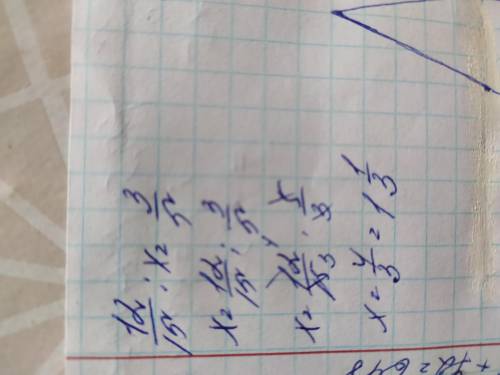 12/15 : x = 3/5
x = 12/15 : 3/5
x = 12/15 · 5/3
x = 4/3 = 1 1/3